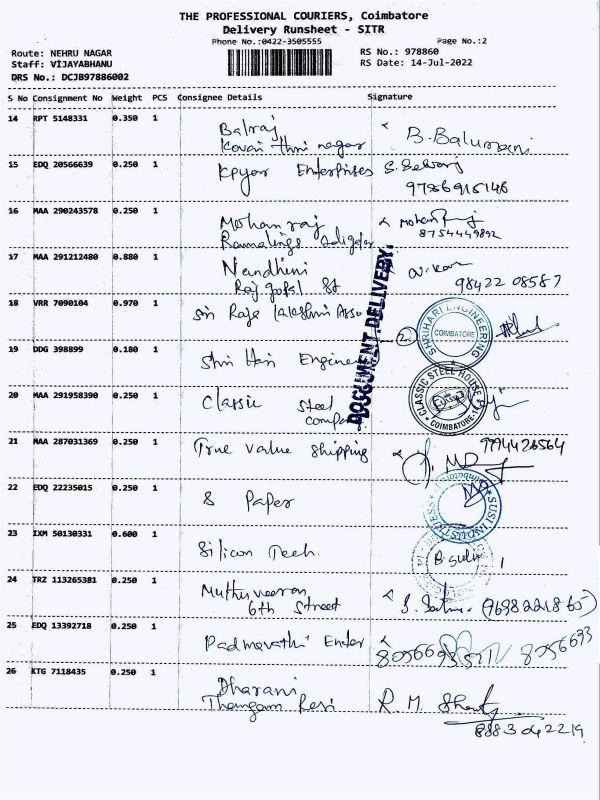 THE PROFESSIONAL COURIERS, Coimbatore
Delivery Runsheet - SITR
Phone No.:0422-3505555 Page No.:2
Route: NEHRU NAGAR RS No.: 978860
Staff: VIJAYABHANU RS Date: 14-Jul-2022
DRS No.: DCJB97886002
S No Consignment No Weight PCS Consignee Details Signature
14 RPT 5148331 0.350 1 Balraj
Kovai Thri nagar
15 EDQ 20566639 0.250 1 Enterprises
9786916146
16 MAA 290243578 0.250 1 Mohan raj
8754449892
17 MAA 291212480 0.880 1 Nandhini
Raj gopal St 98422 08587
DOCUMENT DELIVERY
18 VRR 7090104 0.970 1 Sri Raja Lakshmi Asso
2 SHRUHARI ENGINEERING COIMBATORE
19 DDG 398899 0.180 1 Shri Hari Enginee
20 MAA 291958390 0.250 1 Classic Steel
company
CLASSIC STEEL HOUSE COIMBATORE
21 MAA 287031369 0.250 1 True value shipping
9994426564
22 EDQ 22235015 0.250 1 S Paper
23 IXM 50130331 0.600 1 Silicon Tech.
24 TRZ 113265381 0.250 1 Muthuveeran
6th Street
25 EDQ 13392718 0.250 1 Padmavathi Enter
8056693
26 KTG 7118435 0.250 1 Dharani
R. M.
8883042219